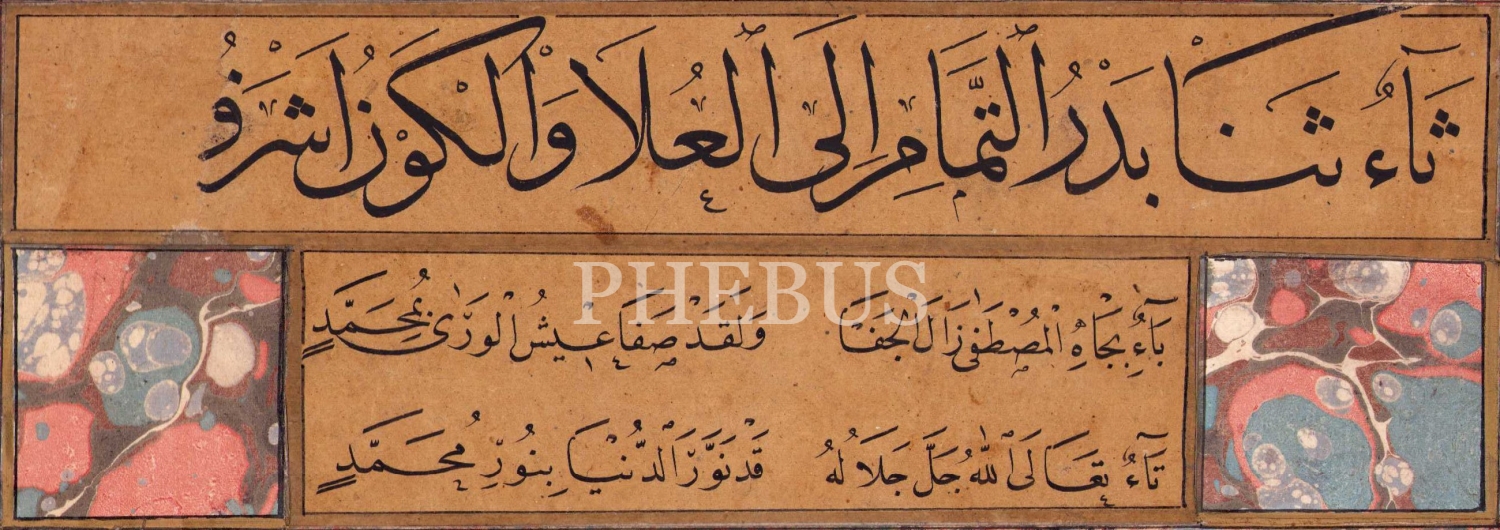 ثَآءُ ثَنَا بَدْرُ ٱلتَّمَّامِ اِلَى ٱلْعُلَا وَالْكَوْنُ اَشْرَفُ
PHEBUS
بَآءٌ بِجَاهِ الْمُصْطَفٰى زَالَ الْجَفَا وَلَقَدْ صَفَا عَيْشُ الْوَرٰى بِمُحَمَّدٍ
تَآءٌ تَعَالَى ٱللّٰهُ جَلَّ جَلَالُهُ قَدْ نَوَّرَ ٱلدُّنْيَا بِنُورِ مُحَمَّدٍ